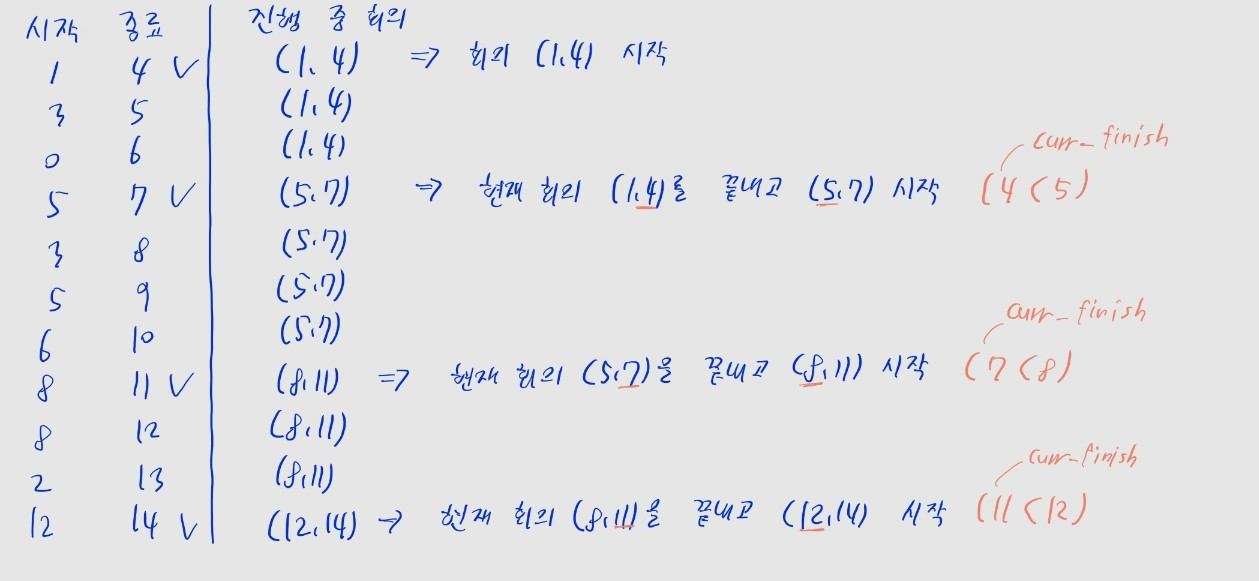 시작 종료 진행 중 회의
1 4 V (1, 4) => 회의 (1,4) 시작
3 5 (1,4)
0 6 (1,4)
curr_finish
5 7 V (5,7) => 현재 회의 (1,4)를 끝내고 (5,7) 시작 (4<5)
3 8 (5,7)
5 9 (5,7)
6 10 (5,7)
curr_finish
8 11 V (8,11) => 현재 회의 (5,7)을 끝내고 (8,11) 시작 (7<8)
8 12 (8,11)
2 13 (8,11)
curr_finish
12 14 V (12,14) -> 현재 회의 (8,11)을 끝내고 (12,14) 시작 (11<12)